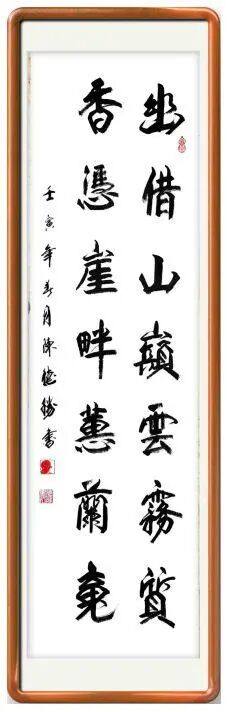 幽借山巔雲霧質
香憑崖畔蕙蘭
壬寅年春月陳勝書